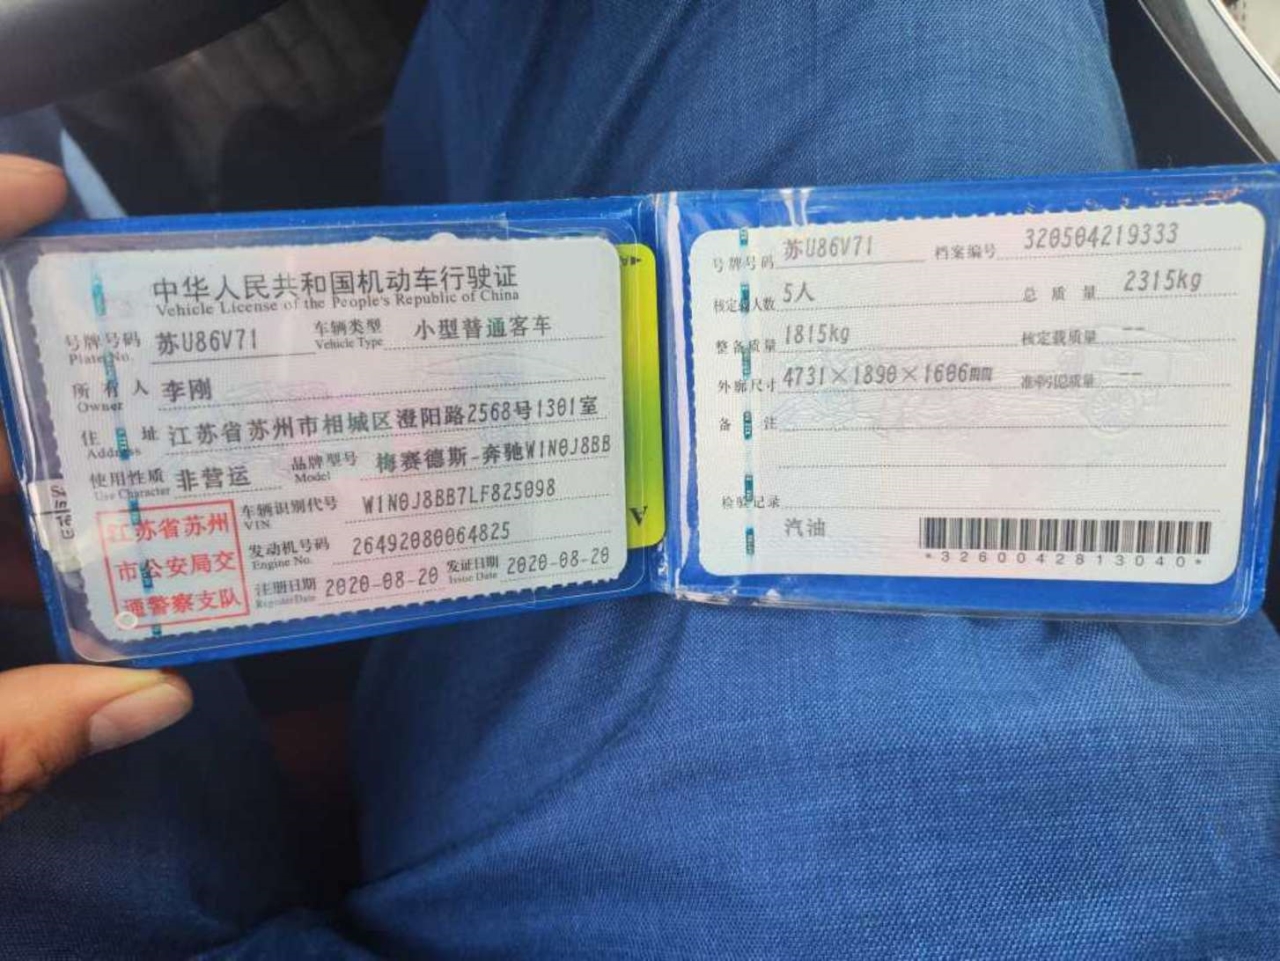 中华人民共和国机动车行驶证
Vehicle License of the People's Republic of China
号牌号码 苏U86V71 车辆类型 小型普通客车
Plate No. Vehicle Type
所有人 李刚
Owner
住址 江苏省苏州市相城区澄阳路2568号1301室
Address
使用性质 非营运 品牌型号 梅赛德斯-奔驰W1N0J8BB
Use Character Model
江苏省苏州
市公安局交
通警察支队
车辆识别代号 W1N0J8BB7LF825098
VIN
发动机号码 26492080064825
Engine No.
注册日期 2020-08-20 发证日期 2020-08-20
Register Date Issue Date
号牌号码 苏U86V71 档案编号 320504219333
核定载人数 5人 总质量 2315kg
整备质量 1815kg 核定载质量 --
外廓尺寸 4731×1890×1606mm 准牵引总质量 --
备注
检验记录
汽油
*3260042813040*